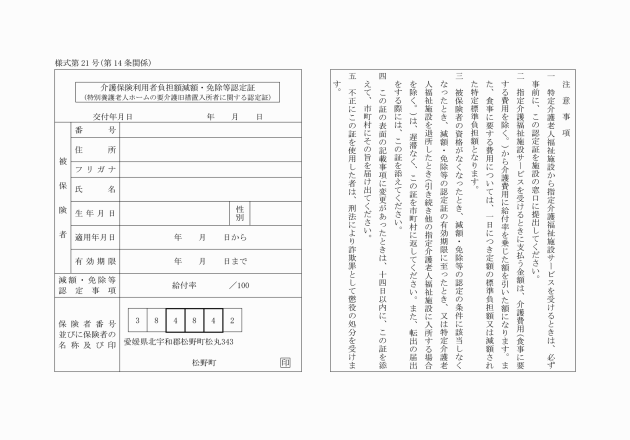 様式第21号(第14条関係)
介護保険利用者負担額減額・免除等認定証
(特別養護老人ホームの要介護旧措置入所者に関する認定証)
交付年月日 年 月 日
被保険者
番号
住所
フリガナ
氏名
生年月日
性別
適用年月日 年 月 日から
有効期限 年 月 日まで
減額・免除等
認定事項
給付率 /100
保険者番号
並びに保険者の
名称及び印
3 8 4 8 4 2
愛媛県北宇和郡松野町松丸343
松野町 印
注意事項
一 特定介護老人福祉施設から指定介護福祉施設サービスを受けるときは、必ず
事前に、この認定証を施設の窓口に提出してください。
二 指定介護福祉施設サービスを受けるときに支払う金額は、介護費用(食事に要
する費用を除く。)から介護費用に給付率を乗じた額を引いた額になります。ま
た、食事に要する費用については、一日につき定額の標準負担額又は減額され
た特定標準負担額となります。
三 被保険者の資格がなくなったとき、減額・免除等の認定の条件に該当しなく
なったとき、減額・免除等の認定証の有効期限に至ったとき、又は特定介護老
人福祉施設を退所したとき(引き続き他の指定介護老人福祉施設に入所する場合
を除く。)は、遅滞なく、この証を市町村に返してください。また、転出の届出
をする際には、この証を添えてください。
四 この証の表面の記載事項に変更があったときは、十四日以内に、この証を添
えて、市町村にその旨を届け出てください。
五 不正にこの証を使用した者は、刑法により詐欺罪として懲役の処分を受けま
す。